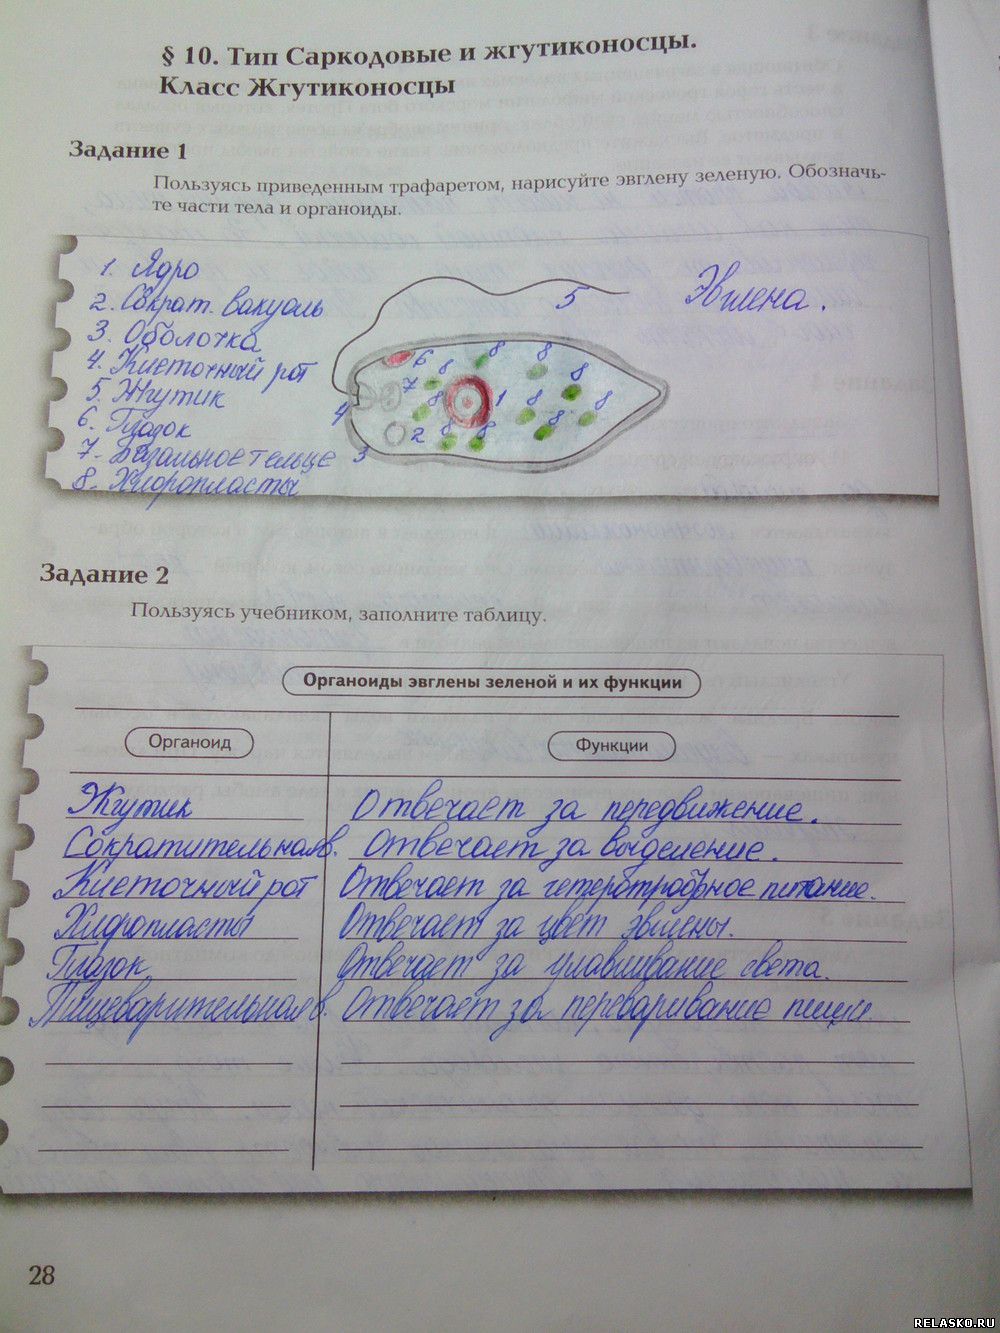 § 10. Тип Саркодовые и жгутиконосцы.
Класс Жгутиконосцы
Задание 1
Пользуясь приведенным трафаретом, нарисуйте эвглену зеленую. Обозначь-
те части тела и органоиды.
1. Ядро
2. Сократ. вакуоль
3. Оболочка
4. Клеточный рот
5. Жгутик
6. Глазок
7. Базальное тельце
8. Хлоропласты
5 Эвглена.
6 8 8 8
7 8 8 8
4 1 8 8
2 8 8
3
Задание 2
Пользуясь учебником, заполните таблицу.
Органоиды эвглены зеленой и их функции
Органоид Функции
Жгутик Отвечает за передвижение.
Сократительная в. Отвечает за выделение.
Клеточный рот Отвечает за гетеротрофное питание.
Хлоропласты Отвечает за цвет эвглены.
Глазок Отвечает за улавливание света.
Пищеварительная в. Отвечает за переваривание пищи.
28
RELASKO.RU